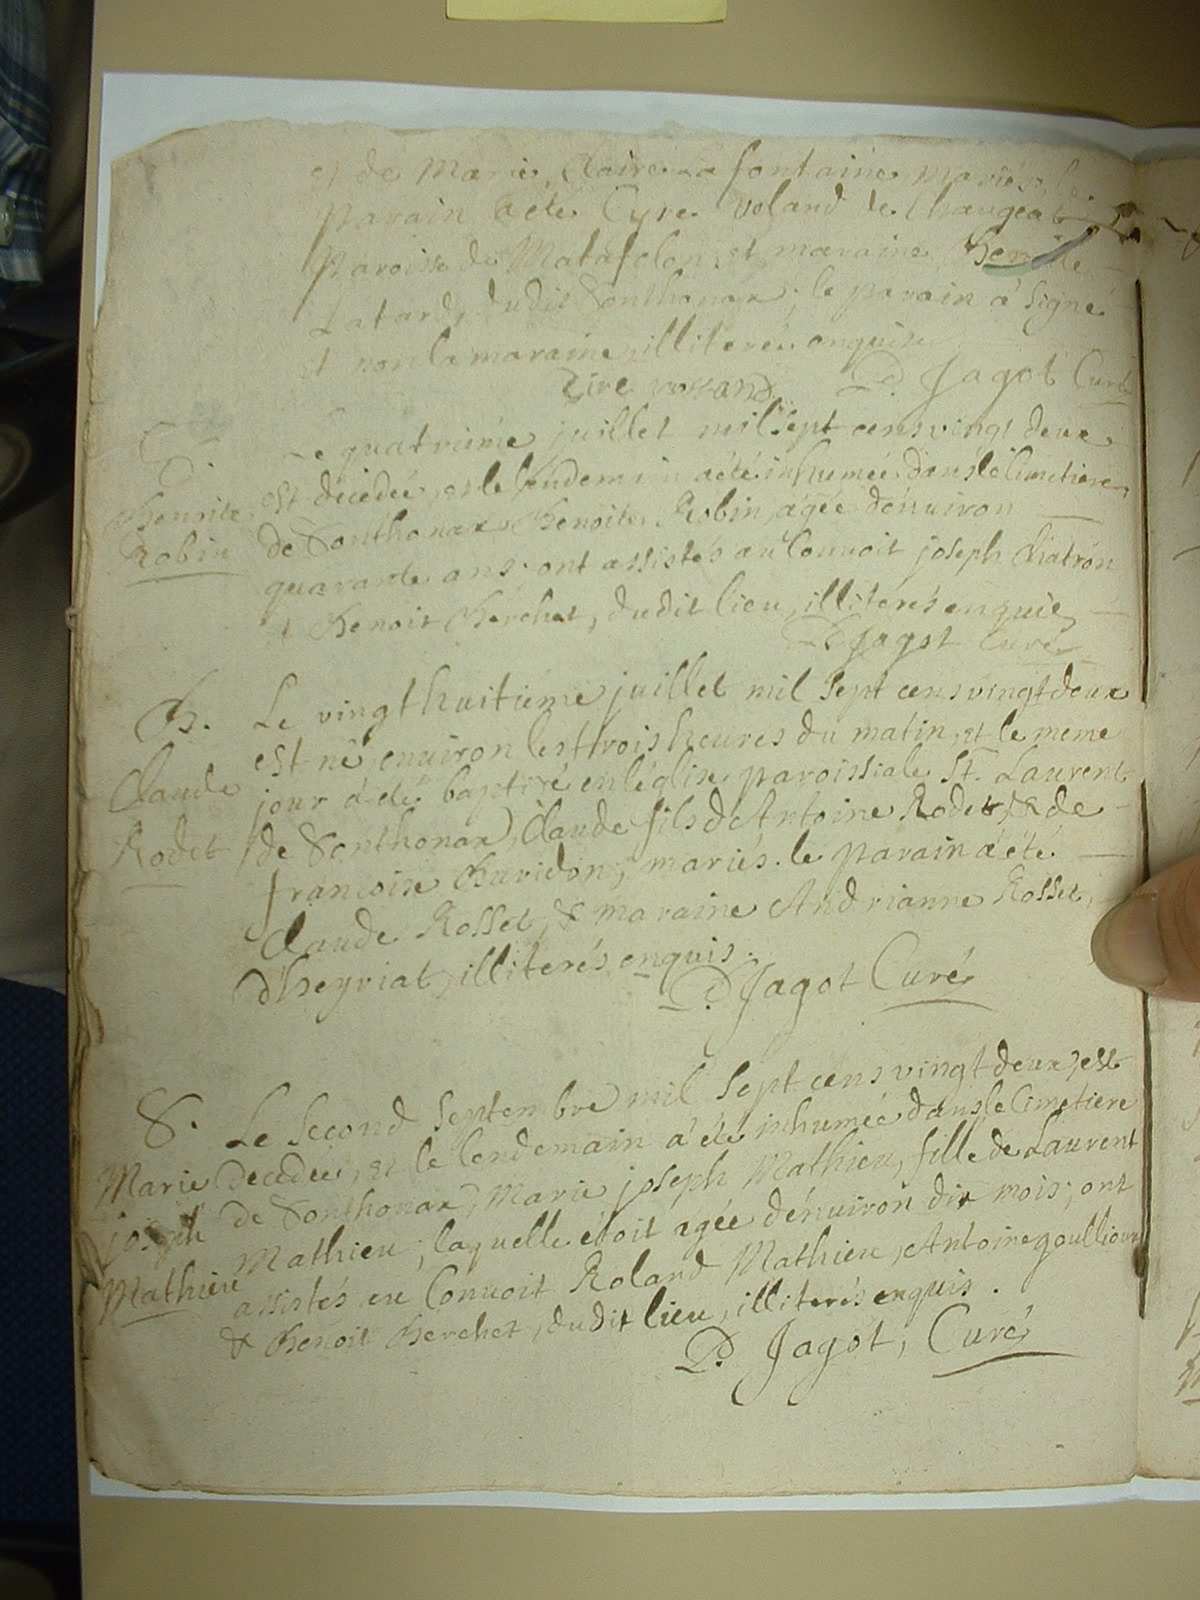 et de Marie Claire La fontaine mariés, le
parain a été Cyre Voland de Changeat
Paroisse de Matafelon et maraine Benoite
Latard, dudit Sonthonax; le parain a signé
et non la maraine illiterée enquise
Cire voland D. Jagot Curé
Le quatrième juillet mil sept cens vingt deux
est décédée, et le lendemain a été inhumée dans le Cimetiere
Benoite
Robin
de Sonthonax Benoite Robin, agée d'environ
quarante ans; ont assistés au Convoit joseph Chatron
et Benoit Berchet, dudit lieu, illiterés enquis
D. Jagot Curé
B.
Claude
Rodet
Le vingt huitième juillet mil sept cens vingt deux
est né environ les trois heures du matin, et le meme
jour a été baptisé en léglise paroissiale St. Laurent
de Sonthonax, Claude fils de Antoine Rodet, & de
francoise Buridon, mariés. le parain a été
Claude Rosset, & maraine Andrianne Rosset,
d'heyriat, illiterés enquis.
D. Jagot Curé
S.
Marie
joseph
Mathieu
Le Second Septembre mil Sept cens vingt deux, est
Decedée, et le lendemain a été inhumée dans le Cimetiere
de Sonthonax, Marie joseph Mathieu, fille de Laurent
Mathieu; laquelle étoit agée d'enuiron dix mois; ont
assistés au Convoit Roland Mathieu, Antoine goullioux
& Benoit Berchet, dudit lieu, illiterés enquis.
D. Jagot, Curé